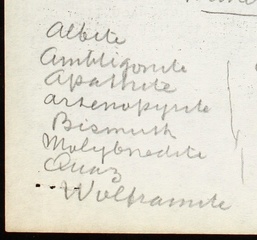 Albite
Ambligonite
Apathite
arsenopyrite
Bismuth
Molybnedite
Quaz
Wolframite